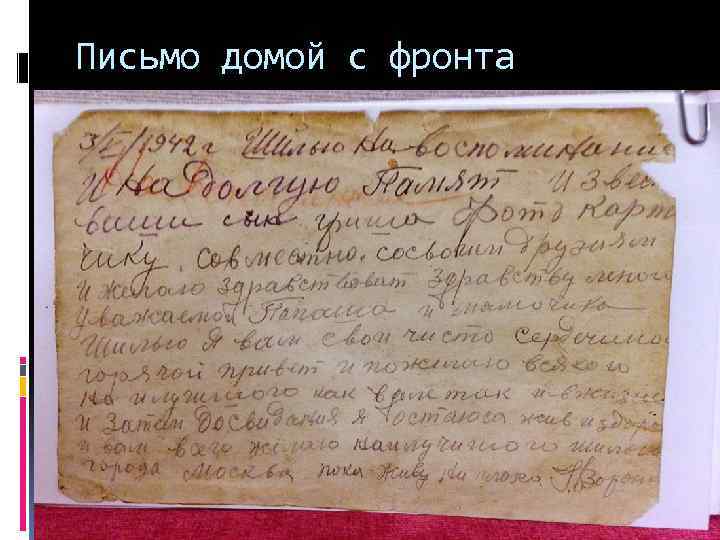 Письмо домой с фронта
3/I/1942 г Шилью на воспоминание
и на Долгую Памят извес
ваши сын гриша фото карт
чику совместно сосвоим друзиям
и желаю здравствоват здравству много
уважаемой Папаша и мамочка
Шилью я вам свой чисто сердечно
горячой привет и пожилаю всякого
на илучшого как вам так и вжизне
и Затем Досвидания я остаюса жив издоро
и вам всего желаю наилучшого
города Москва пока живу ни плохо